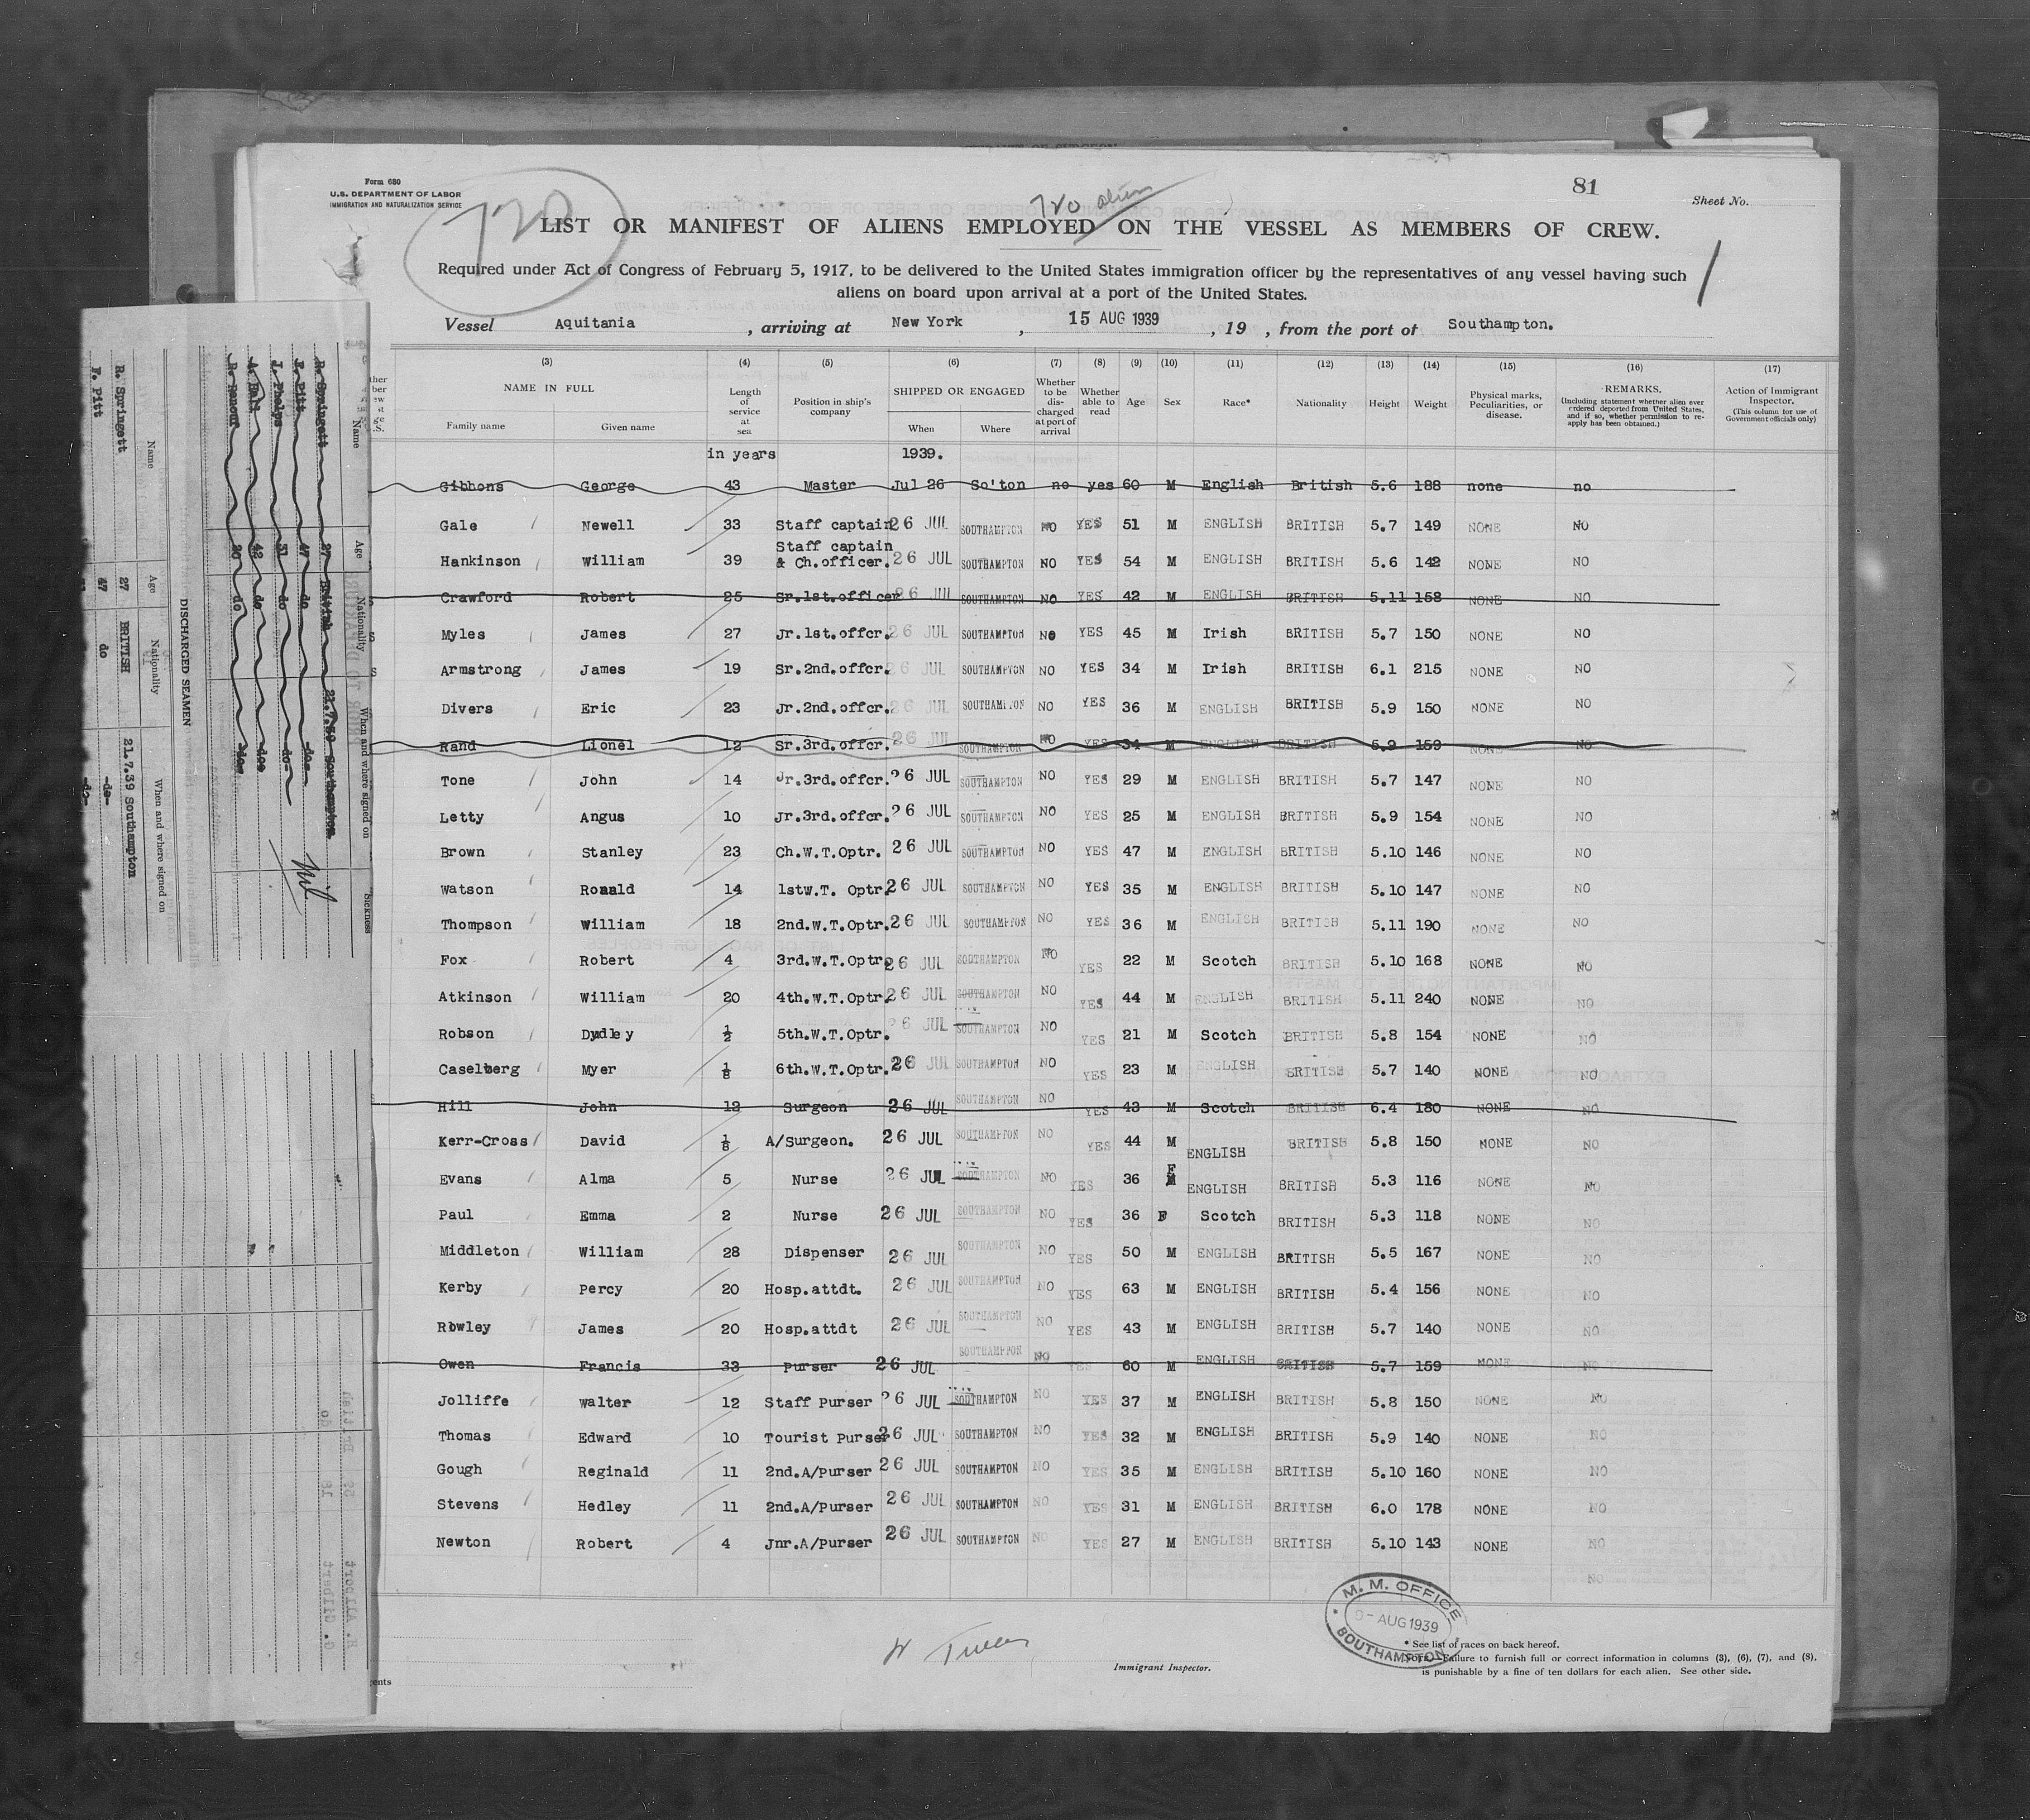 Form 680
U.S. DEPARTMENT OF LABOR
IMMIGRATION AND NATURALIZATION SERVICE
720
720 alien
81
Sheet No.
LIST OR MANIFEST OF ALIENS EMPLOYED ON THE VESSEL AS MEMBERS OF CREW.
Required under Act of Congress of February 5, 1917, to be delivered to the United States immigration officer by the representatives of any vessel having such
aliens on board upon arrival at a port of the United States.
Vessel Aquitania, arriving at New York, 15 AUG 1939, 19 , from the port of Southampton.
(3) (4) (5) (6) (7) (8) (9) (10) (11) (12) (13) (14) (15) (16) (17)
NAME IN FULL
Family name Given name
Length of service at sea
Position in ship's company
SHIPPED OR ENGAGED
When Where
Whether to be discharged at port of arrival
Whether able to read
Age
Sex
Race*
Nationality
Height
Weight
Physical marks, Peculiarities, or disease.
REMARKS.
(Including statement whether alien ever ordered deported from United States, and if so, whether permission to reapply has been obtained.)
Action of Immigrant Inspector.
(This column for use of Government officials only)
in years 1939.
Gibbons George 43 Master Jul 26 So'ton no yes 60 M English British 5.6 188 none no
Gale Newell 33 Staff captain 26 JUL SOUTHAMPTON NO YES 51 M ENGLISH BRITISH 5.7 149 NONE NO
Hankinson William 39 Staff captain & Ch.officer. 26 JUL SOUTHAMPTON NO YES 54 M ENGLISH BRITISH 5.6 142 NONE NO
Crawford Robert 25 Sr.1st.officer 26 JUL SOUTHAMPTON NO YES 42 M ENGLISH BRITISH 5.11 158 NONE NO
Myles James 27 Jr.1st.offcr. 26 JUL SOUTHAMPTON NO YES 45 M Irish BRITISH 5.7 150 NONE NO
Armstrong James 19 Sr.2nd.offcr. 26 JUL SOUTHAMPTON NO YES 34 M Irish BRITISH 6.1 215 NONE NO
Divers Eric 23 Jr.2nd.offcr. 26 JUL SOUTHAMPTON NO YES 36 M ENGLISH BRITISH 5.9 150 NONE NO
Rand Lionel 12 Sr.3rd.offcr. 26 JUL SOUTHAMPTON NO YES 34 M ENGLISH BRITISH 5.9 159 NONE NO
Tone John 14 Jr.3rd.offcr. 26 JUL SOUTHAMPTON NO YES 29 M ENGLISH BRITISH 5.7 147 NONE NO
Letty Angus 10 Jr.3rd.offcr. 26 JUL SOUTHAMPTON NO YES 25 M ENGLISH BRITISH 5.9 154 NONE NO
Brown Stanley 23 Ch.W.T.Optr. 26 JUL SOUTHAMPTON NO YES 47 M ENGLISH BRITISH 5.10 146 NONE NO
Watson Ronald 14 1stw.T. Optr. 26 JUL SOUTHAMPTON NO YES 35 M ENGLISH BRITISH 5.10 147 NONE NO
Thompson William 18 2nd.W.T.Optr. 26 JUL SOUTHAMPTON NO YES 36 M ENGLISH BRITISH 5.11 190 NONE NO
Fox Robert 4 3rd.W.T.Optr. 26 JUL SOUTHAMPTON NO YES 22 M Scotch BRITISH 5.10 168 NONE NO
Atkinson William 20 4th.W.T.Optr. 26 JUL SOUTHAMPTON NO YES 44 M ENGLISH BRITISH 5.11 240 NONE NO
Robson Dudley ½ 5th.W.T.Optr. 26 JUL SOUTHAMPTON NO YES 21 M Scotch BRITISH 5.8 154 NONE NO
Caselberg Myer ⅛ 6th.W.T.Optr. 26 JUL SOUTHAMPTON NO YES 23 M ENGLISH BRITISH 5.7 140 NONE NO
Hill John 12 Surgeon 26 JUL SOUTHAMPTON NO YES 43 M Scotch BRITISH 6.4 180 NONE NO
Kerr-Cross David ⅛ A/Surgeon. 26 JUL SOUTHAMPTON NO YES 44 M ENGLISH BRITISH 5.8 150 NONE NO
Evans Alma 5 Nurse 26 JUL SOUTHAMPTON NO YES 36 F ENGLISH BRITISH 5.3 116 NONE NO
Paul Emma 2 Nurse 26 JUL SOUTHAMPTON NO YES 36 F Scotch BRITISH 5.3 118 NONE NO
Middleton William 28 Dispenser 26 JUL SOUTHAMPTON NO YES 50 M ENGLISH BRITISH 5.5 167 NONE NO
Kerby Percy 20 Hosp.attdt. 26 JUL SOUTHAMPTON NO YES 63 M ENGLISH BRITISH 5.4 156 NONE NO
Rowley James 20 Hosp.attdt 26 JUL SOUTHAMPTON NO YES 43 M ENGLISH BRITISH 5.7 140 NONE NO
Owen Francis 33 purser 26 JUL SOUTHAMPTON NO YES 60 M ENGLISH BRITISH 5.7 159 NONE NO
Jolliffe Walter 12 Staff Purser 26 JUL SOUTHAMPTON NO YES 37 M ENGLISH BRITISH 5.8 150 NONE NO
Thomas Edward 10 Tourist Purser 26 JUL SOUTHAMPTON NO YES 32 M ENGLISH BRITISH 5.9 140 NONE NO
Gough Reginald 11 2nd.A/Purser 26 JUL SOUTHAMPTON NO YES 35 M ENGLISH BRITISH 5.10 160 NONE NO
Stevens Hedley 11 2nd.A/Purser 26 JUL SOUTHAMPTON NO YES 31 M ENGLISH BRITISH 6.0 178 NONE NO
Newton Robert 4 Jnr.A/Purser 26 JUL SOUTHAMPTON NO YES 27 M ENGLISH BRITISH 5.10 143 NONE NO
NO
M. M. OFFICE
AUG 1939
SOUTHAMPTON
Immigrant Inspector.
* See list of races on back hereof.
Note.—Failure to furnish full or correct information in columns (3), (6), (7), and (8),
is punishable by a fine of ten dollars for each alien. See other side.
Name Age Nationality When and where signed on Sickness
R. Springett 27 British 21.7.39 Southampton
F. Pitt 47 do -do-
J. Phelps 31 do -do-
A. Ball 42 do -do-
R. Renouf 20 do -do-
Nil
DISCHARGED SEAMEN
Name Age Nationality When and where signed on
R. Springett 27 BRITISH 21.7.39 Southampton
F. Pitt 47 do -do-
-do-